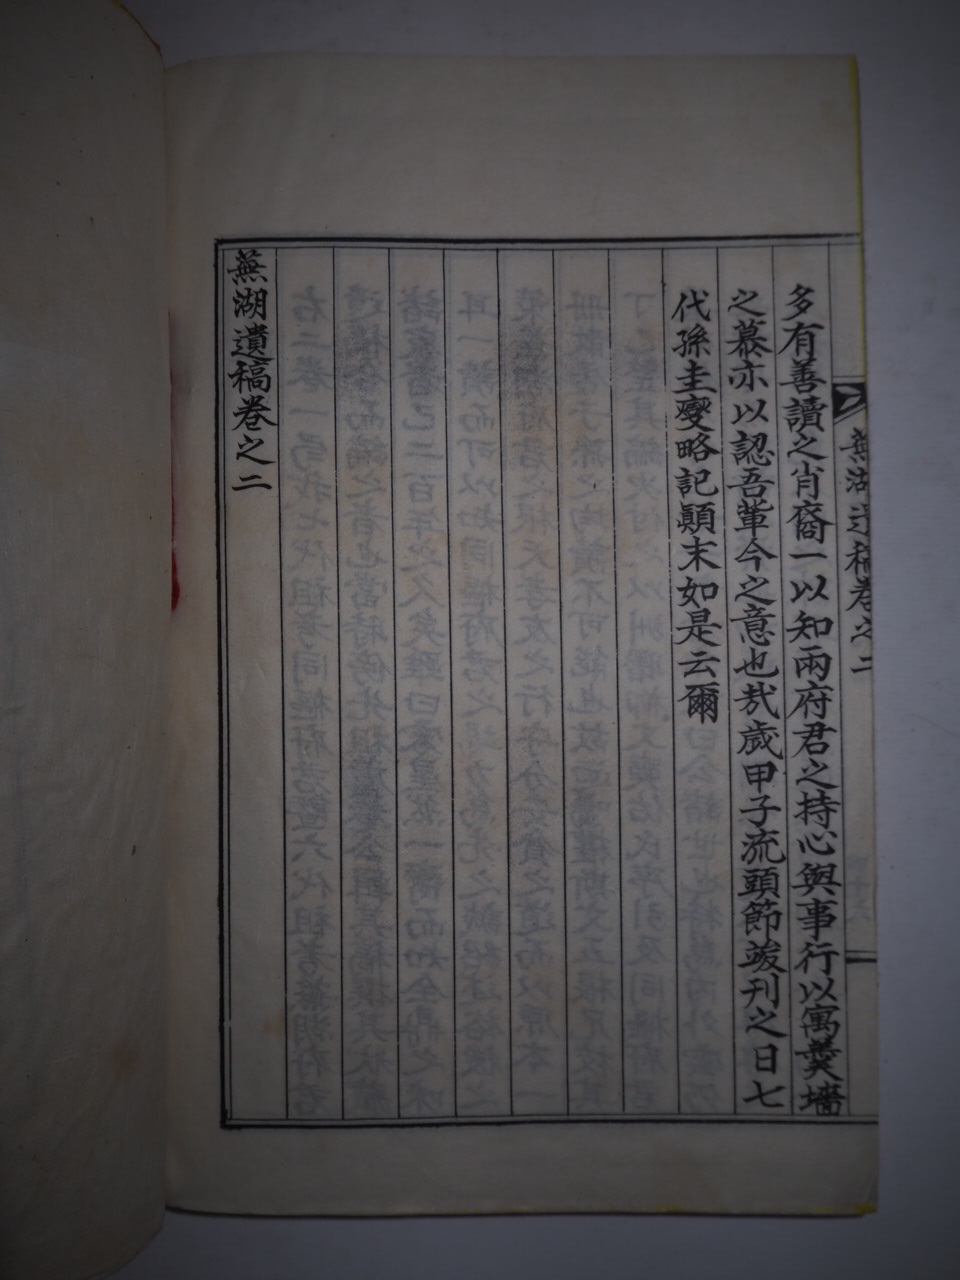 蕪湖遺稿卷之二
多有善讀之肖裔一以知兩府君之持心與事行以寓羹墻
之慕亦以認吾輩今之意也哉歲甲子流頭節竣刊之日七
代孫圭燮略記顚末如是云爾
蕪湖遺稿卷之二